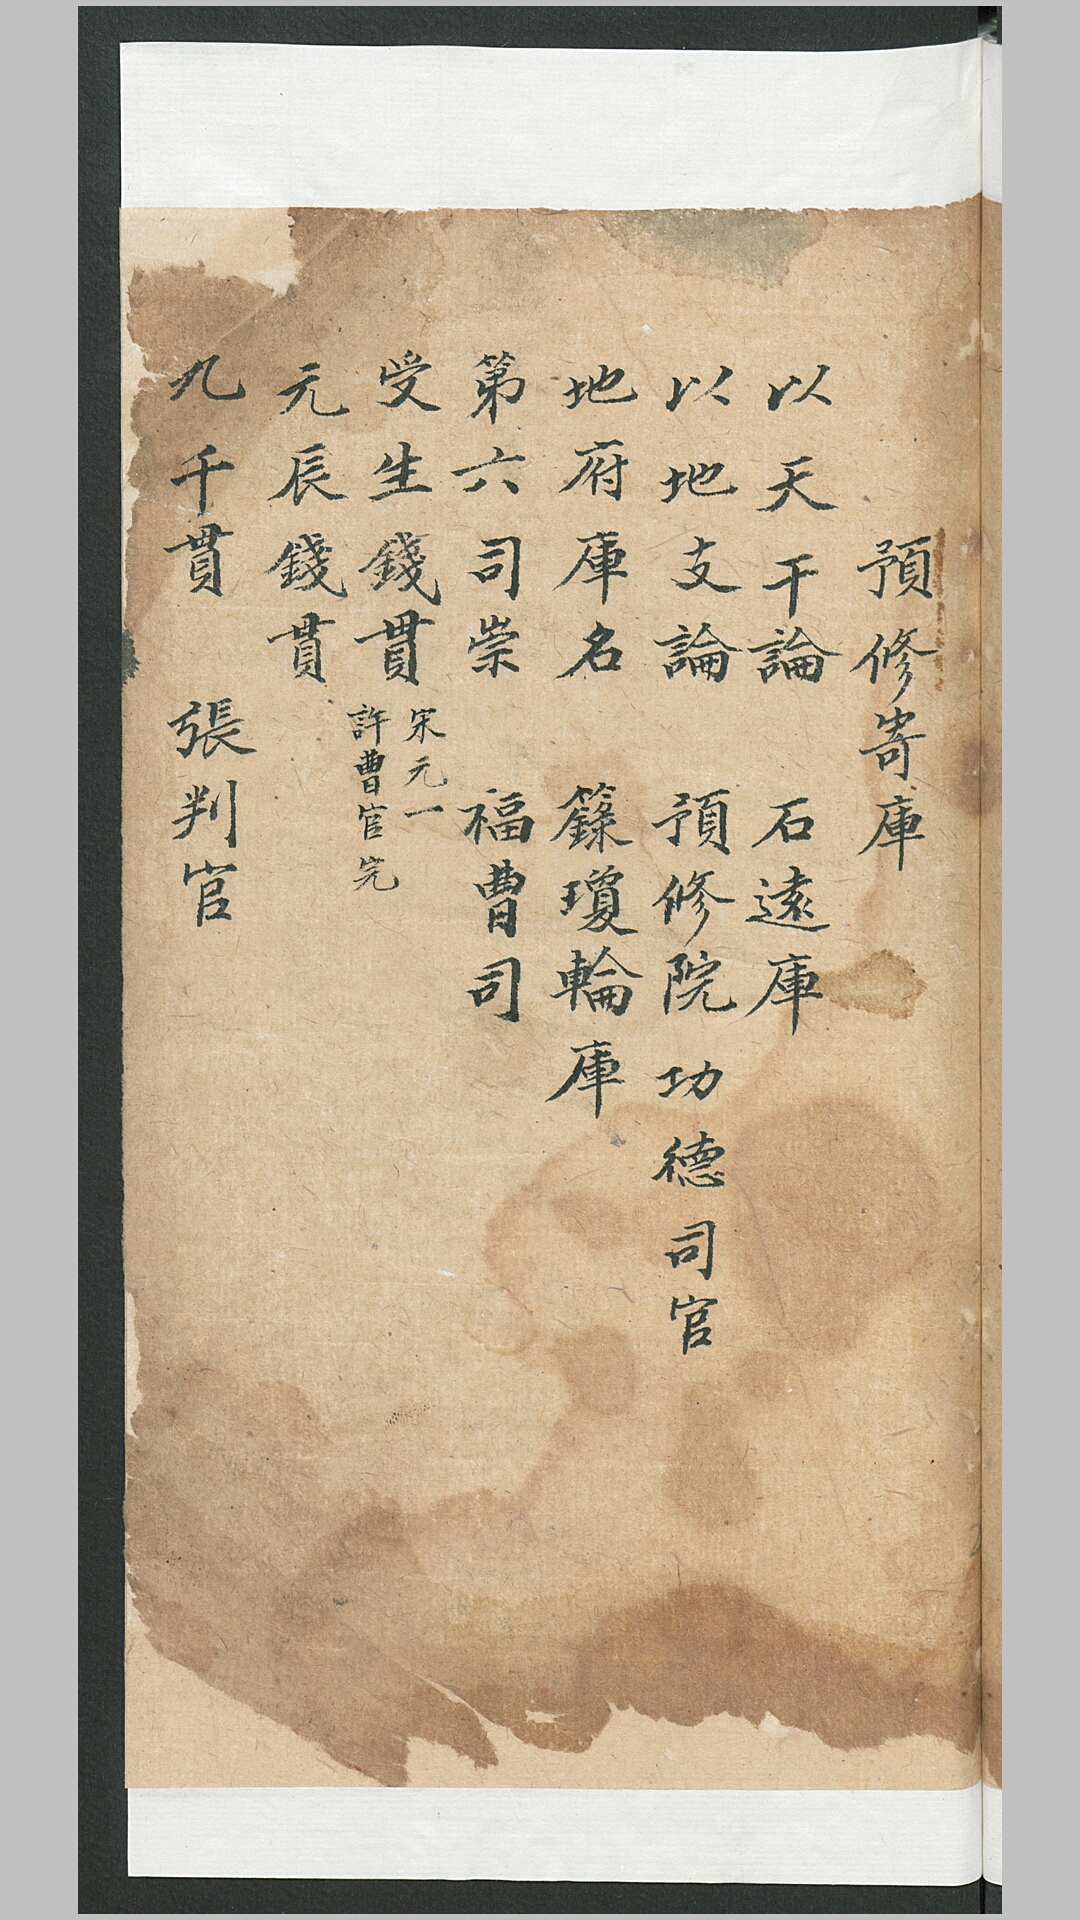 預修寄庫
以天干論 石遠庫
以地支論 預修院功德司官
地府庫名 籙瓊輪庫
第六司崇 福曹司
受生錢貫 宋元一
許曹官完
元辰錢貫
九千貫 張判官